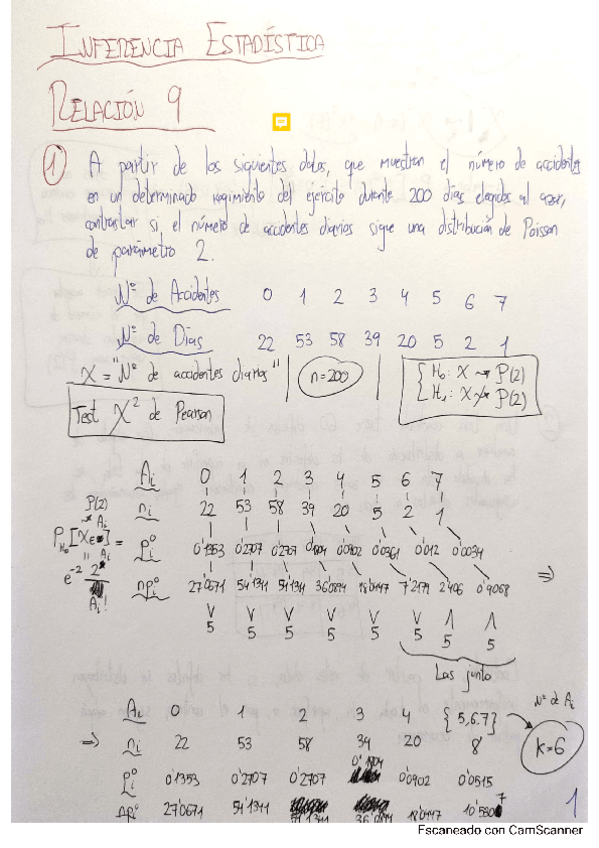 INFERENCIA ESTADÍSTICA
RELACIÓN 9
① A partir de los siguientes datos, que muestran el número de accidentes
en un determinado regimiento del ejército durante 200 días elegidos al azar,
contrastar si el número de accidentes diarios sigue una distribución de Poisson
de parámetro 2.
Nº de Accidentes 0 1 2 3 4 5 6 7
Nº de Días 22 53 58 39 20 5 2 1
X = "Nº de accidentes diarios" n=200 { H₀: X ⇝ P(2)
H₁: X ⇝̸ P(2)
Test X² de Pearson
Ai 0 1 2 3 4 5 6 7
ni 22 53 58 39 20 5 2 1
P(2)
Ai
pi⁰ 0'1353 0'2707 0'2707 0'1804 0'0902 0'0361 0'012 0'0034
e⁻² Ai!
npi⁰ 27'0671 54'1341 54'1341 36'0894 18'0447 7'2179 2'406 0'9068 ⇒
V V V V V V Λ Λ
5 5 5 5 5 5 5 5
Las junto
Nº de Ai
Ai 0 1 2 3 4 {5,6,7}
⇒ ni 22 53 58 34 20 8 K=6
pi⁰ 0'1353 0'2707 0'2707 0'1804 0'0902 0'0515
npi⁰ 27'0671 54'1341 54'1341 36'0894 18'0447 10'5307
1
Escaneado con CamScanner